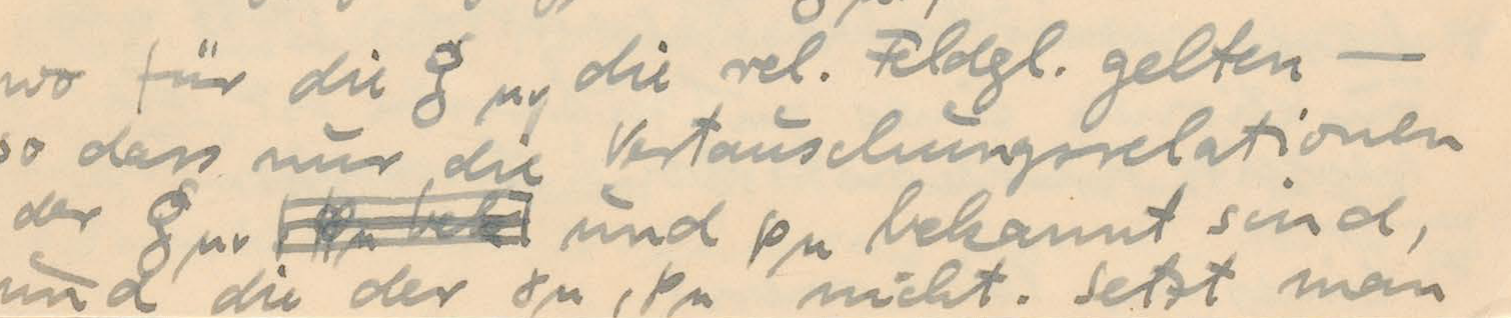 wo für die g μν die rel. Feldgl. gelten —
so dass nur die Vertauschungsrelationen
der g μν und pμ bekannt sind,
und die der γμ, pμ nicht. Setzt man